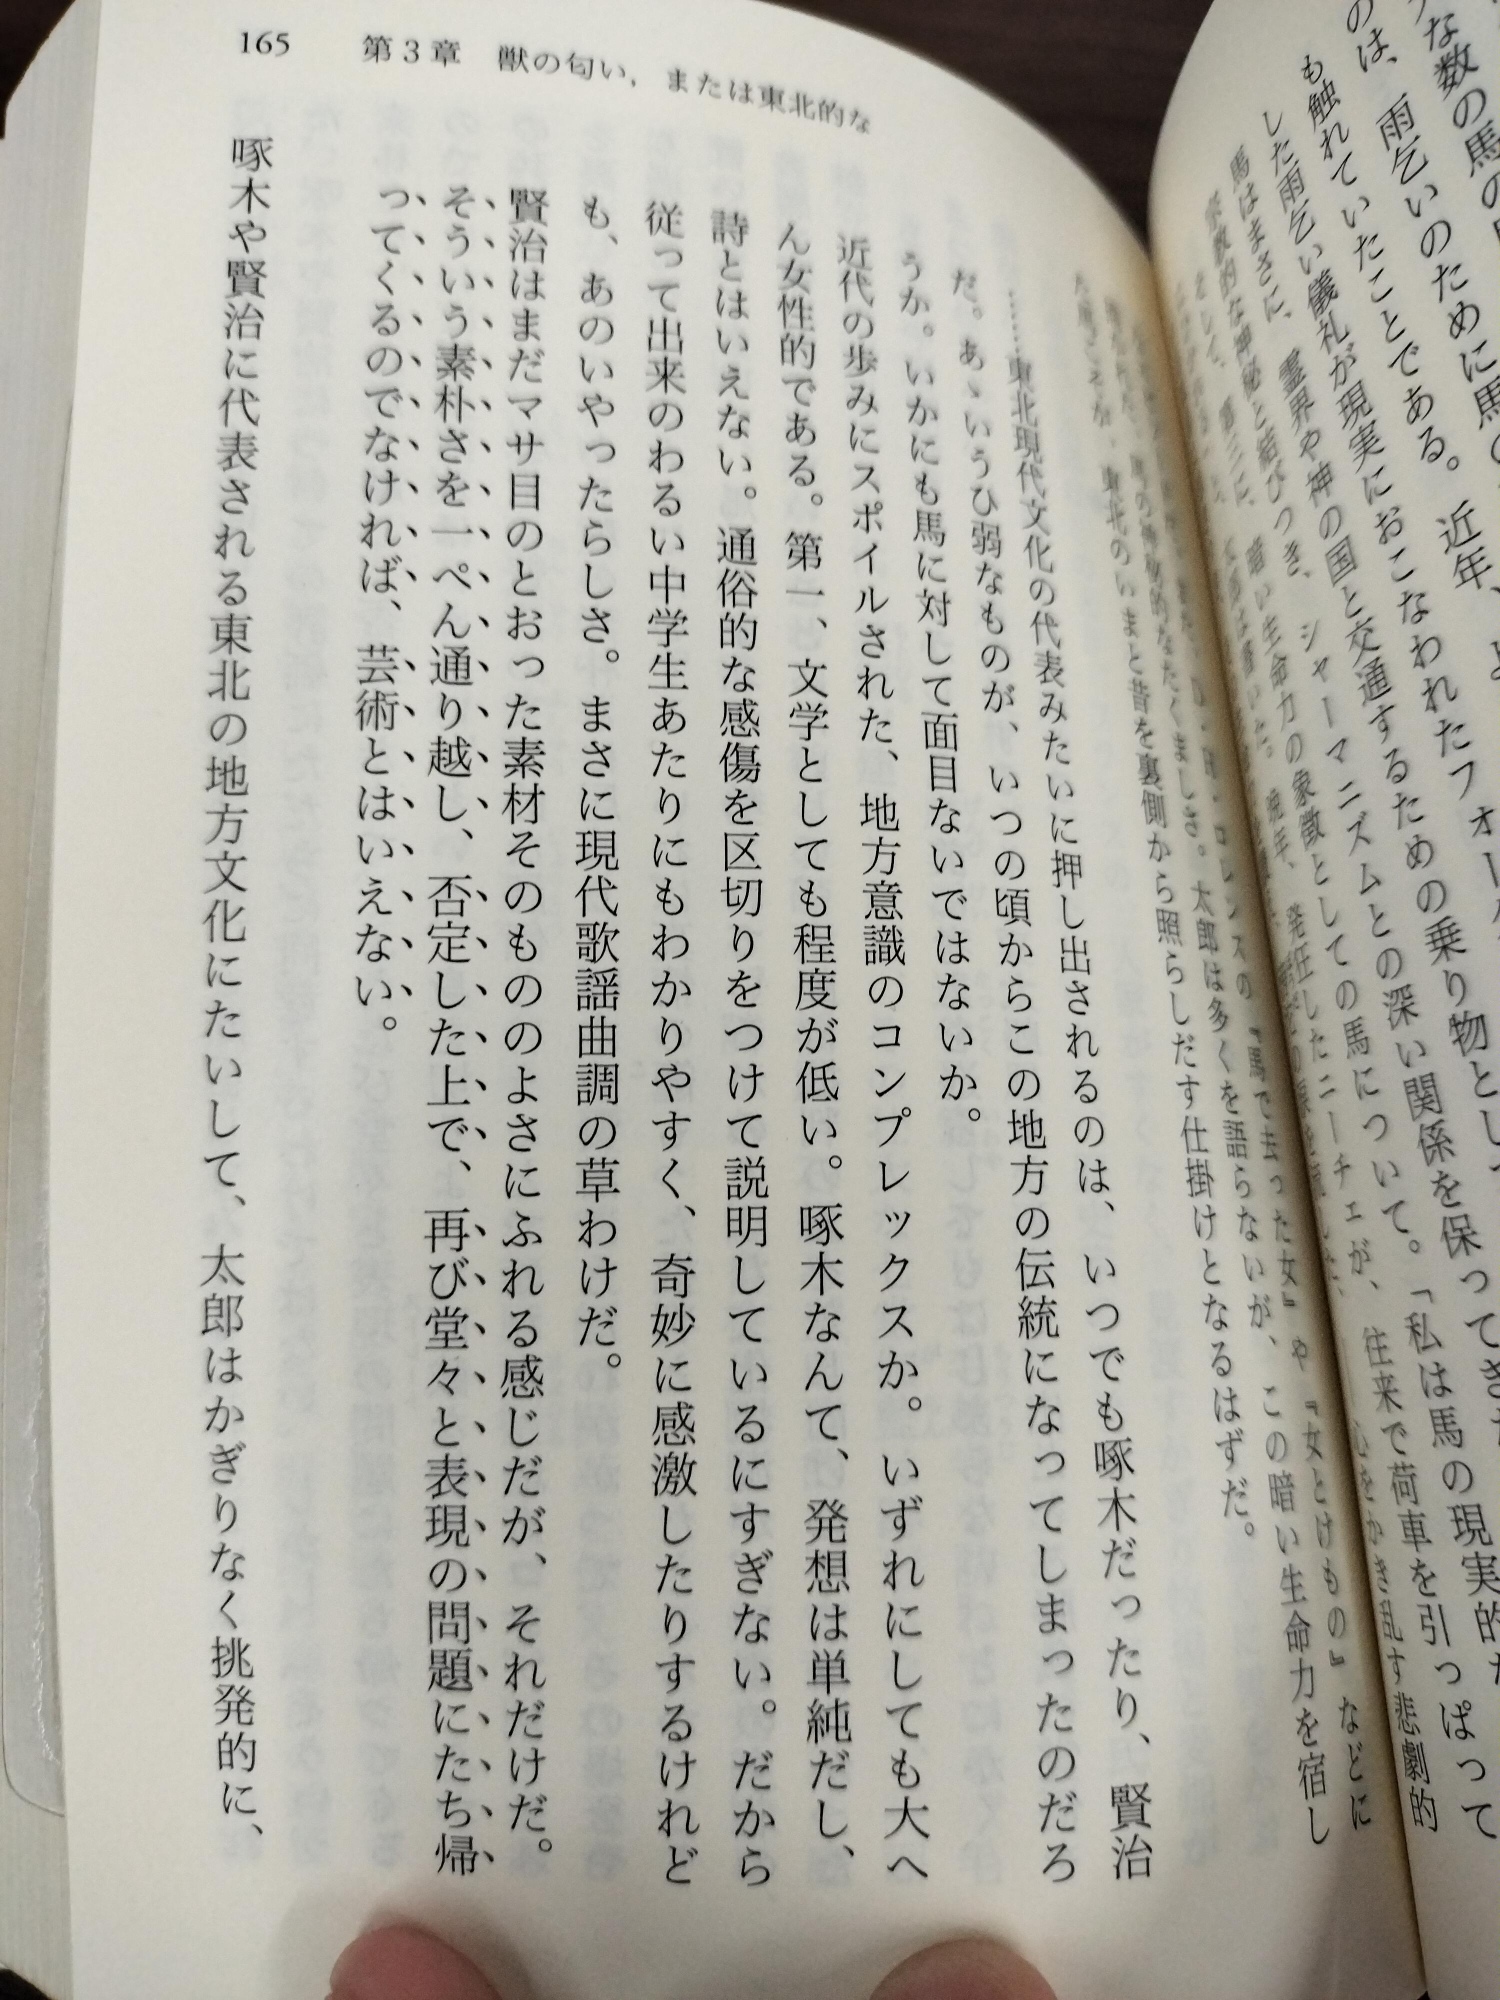 165 第3章 獣の匂い，または東北的な
な数の馬の
のは、雨乞いのために馬の
も触れていたことである。近年、
した雨乞い儀礼が現実におこなわれたフォー
馬はまさに、霊界や神の国と交通するための乗り物とし
宗教的な神秘と結びつき、シャーマニズムとの深い関係を保ってきた
そして、第三に、暗い生命力の象徴としての馬について。「私は馬の現実的な
晩年、発狂したニーチェが、往来で荷車を引っぱって
心をかき乱す悲劇的
ロレンスの『馬で去った女』や『女とけもの』などに
たくましさ。太郎は多くを語らないが、この暗い生命力を宿し
東北のいまと昔を裏側から照らしだす仕掛けとなるはずだ。
……東北現代文化の代表みたいに押し出されるのは、いつでも啄木だったり、賢治
だ。あゝいうひ弱なものが、いつの頃からこの地方の伝統になってしまったのだろ
うか。いかにも馬に対して面目ないではないか。
近代の歩みにスポイルされた、地方意識のコンプレックスか。いずれにしても大へ
ん女性的である。第一、文学としても程度が低い。啄木なんて、発想は単純だし、
詩とはいえない。通俗的な感傷を区切りをつけて説明しているにすぎない。だから
従って出来のわるい中学生あたりにもわかりやすく、奇妙に感激したりするけれど
も、あのいやったらしさ。まさに現代歌謡曲調の草わけだ。
賢治はまだマサ目のとおった素材そのもののよさにふれる感じだが、それだけだ。
そういう素朴さを一ぺん通り越し、否定した上で、再び堂々と表現の問題にたち帰
ってくるのでなければ、芸術とはいえない。
啄木や賢治に代表される東北の地方文化にたいして、太郎はかぎりなく挑発的に、